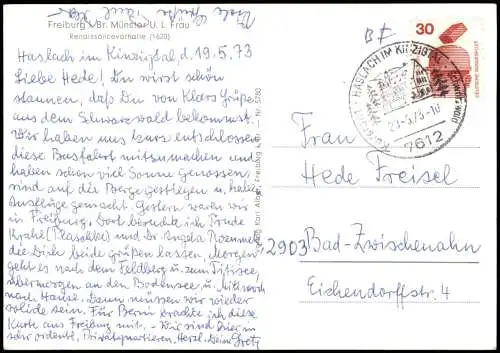 Viele Grüße
Freiburg i. Br. Münster U. L. Frau
Renaissancevorhalle (1620)
Haslach im Kinzigtal, d. 19.5.73
Liebe Hede! Du wirst schön
staunen, daß Du von Klaß Grüße
aus dem Schwarzwald bekommst.
Wir haben uns kurz entschlossen
diese Busfahrt mitzumachen und
haben schon viel Sonne genossen,
sind auf die Berge gestiegen u. habe
Ausflüge gemacht. Gestern waren wir
in Freiburg. Dort besuchte ich Trude
Krahé (Plaschke) und Dr. Angela
die Dich beide grüßen lassen, Morgen
geht es nach dem Feldberg u. zum Titisee,
übermorgen an den Bodensee u. Mittwoch
nach Hause. Dann müssen wir wieder
solide sein. Für Bernh brachte ich diese
Karte aus Freiburg mit. - Wir sind hier in
sehr ordentl. Privatquartieren. Herzl. Deine Grete
Verlag Karl Alber, Freiburg Nr. 5780
B F
30
DEUTSCHE BUNDESPOST
HASLACH IM KINZIGTAL
23-5.73-10
7612
Frau
Hede Freisel
2903 Bad-Zwischenahn
Eichendorffstr. 4